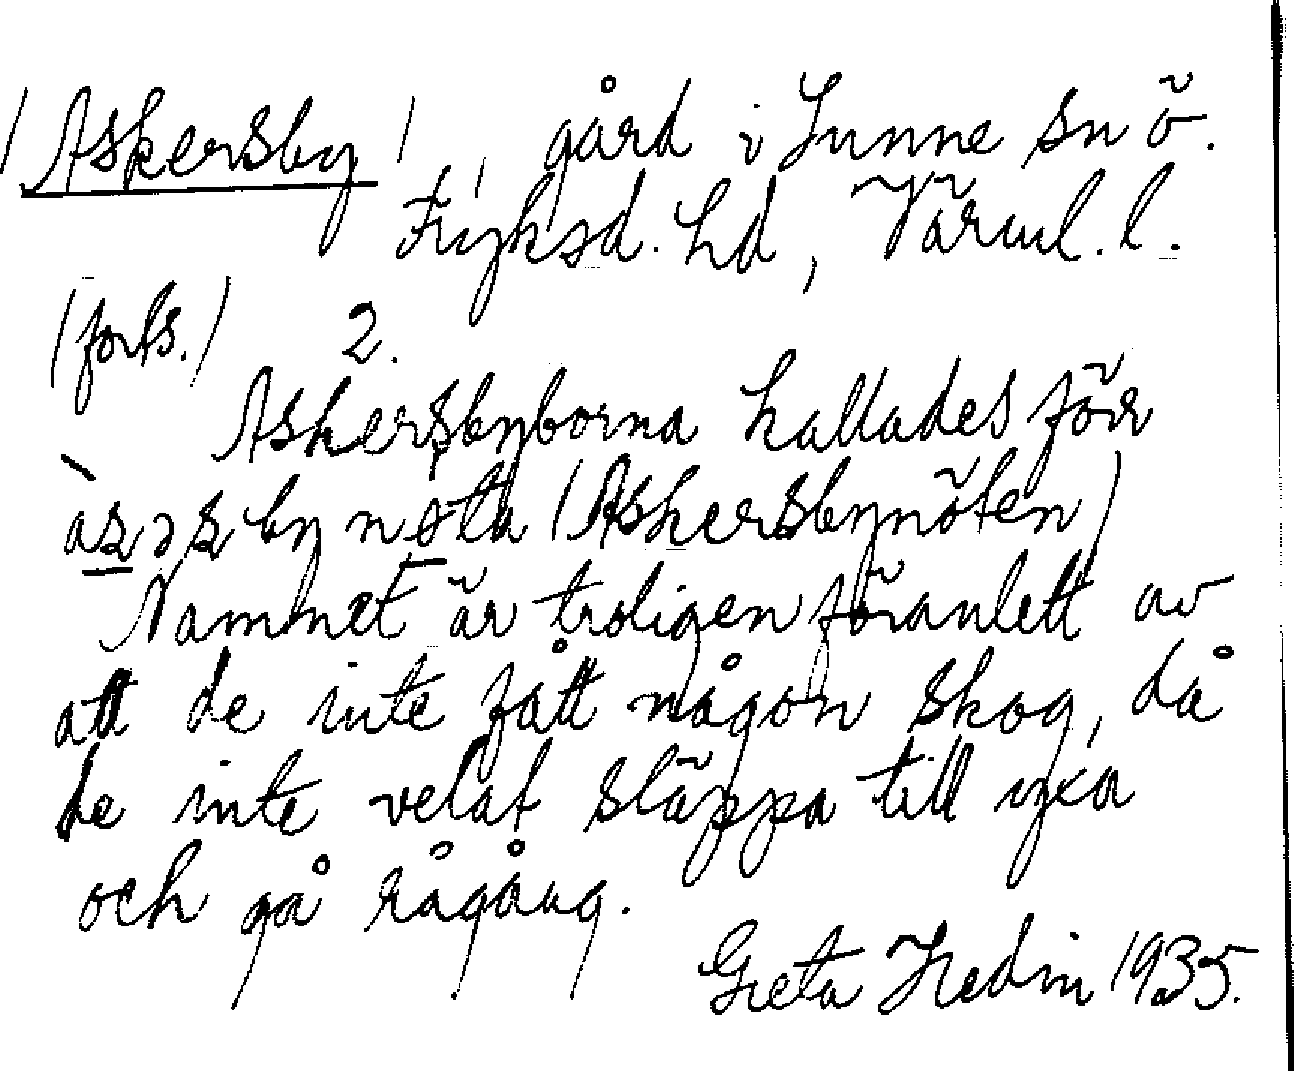 /Askersby/, gård i Sunne sn ö.
Fryksd. hd, Värml. l.
/forts./ 2.
Askersbyborna kallades förr
àsəsbynøta /Askersbynöten/
Namnet är troligen föranlett av
att de inte fått någon skog, då
de inte velat släppa till yxa
och gå rågång.
Greta Hedin 1935.